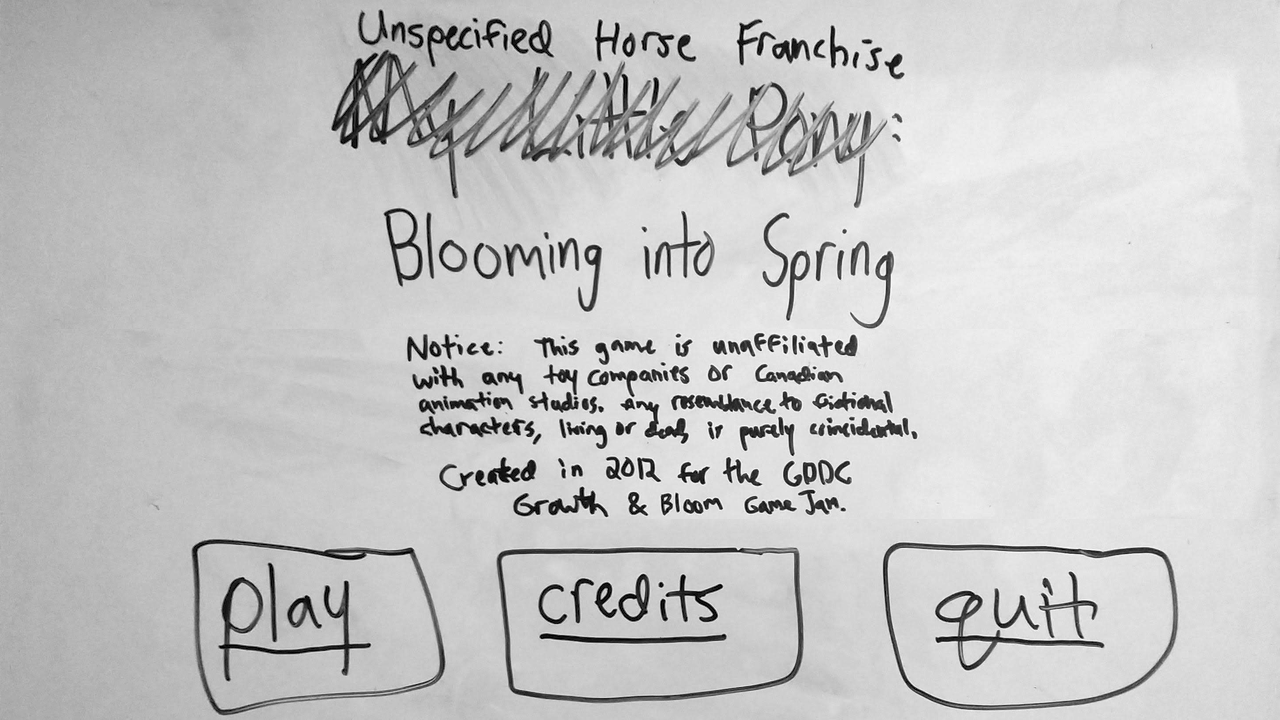 Unspecified Horse Franchise
My Little Pony:
Blooming into Spring
Notice: This game is unaffiliated
with any toy companies or Canadian
animation studios. Any resemblance to fictional
characters, living or dead, is purely coincidental.
Created in 2012 for the GDDC
Growth & Bloom Game Jam.
play
credits
quit